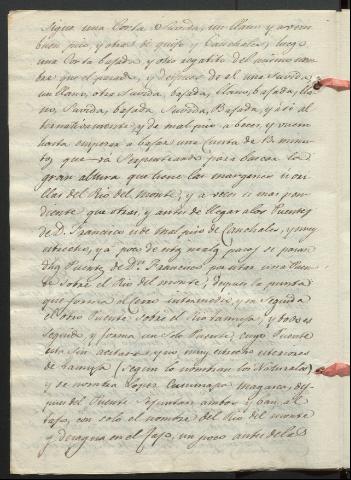 Sigue una Corta Subida, un llano y a
buen piso, y otros de quijo y Canchales, luego
una Corta bajada, y otro regatito del mismo nom
bre que el pasado, y despues de el una Subida,
un llano, otra Subida, bajada, llano, bajada, lla
no, Subida, bajada Subida, Bajada, y así al
ternativamente, y de mal piso a veces,
hasta empezar a bajar una Cuesta de
que va Serpenteando para buscar la
gran altura que tiene las margenes u ori
llas del Rio del monte, y a veces es mas pen
diente que otras, y antes de llegar a los Puentes
de D. Francisco es de mal piso de Canchales, y muy
estrecho, y a poco de este malo paso se pasan
dhos Puentes de Dn. Francisco que es uno Puen
te sobre el Rio del monte, despues la punta
que forma el cerro intermedio, y en seguida
el otro Puente sobre el Rio Tamuja, y todo es
seguido, y forma un Solo Puente; cuyo Puente
esta Sin acitaras, y es muy estrecho
de Tamuja (segun lo nombran los Naturales)
y se nombra Lopez
pues del Puente se juntan ambos y van al
tajo, con solo el nombre del Rio del monte
y desagua en el Tajo, un poco antes de las